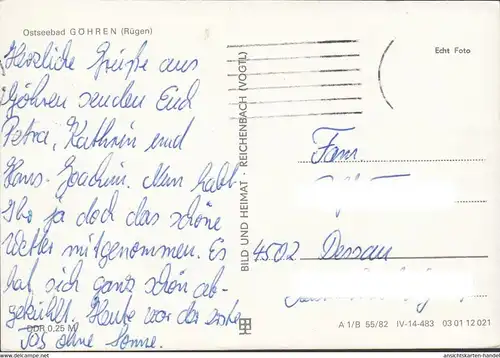 Ostseebad GÖHREN (Rügen)
Herzliche Grüße aus
Göhren senden Euch
Petra, Kathrin und
Hans-Joachim. Nun habt
Ihr ja doch das schöne
Wetter mitgenommen. Es
hat sich ganz schön ab-
gekühlt. Heute war der erste
Tag ohne Sonne.
DDR 0,25 M
BILD UND HEIMAT · REICHENBACH (VOGTL)
Echt Foto
Fam
4502 Dessau
A 1/B 55/82 IV-14-483 03 01 12 021